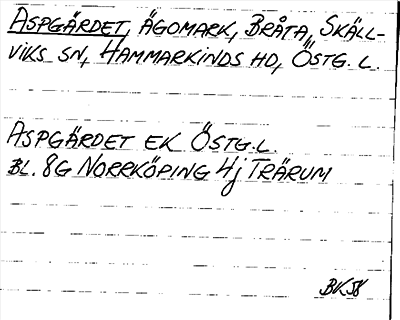 ASPGÄRDET, ÄGOMARK, BRÅTA, SKÄLL-
VIKS SN, HAMMARKINDS HD, ÖSTG. L.
ASPGÄRDET EK ÖSTG. L.
BL. 8G NORRKÖPING 4j TRÄRUM
BK58